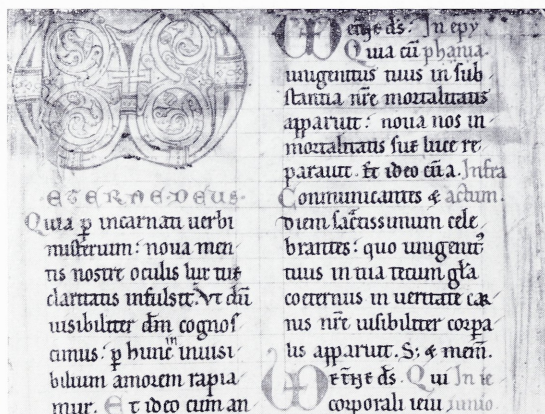 ETERNE DEUS
Quia p̄ incarnati uerbi
misterium: noua men
tis nostre oculis lux tuę
claritatis infulsit. Vt dū
uisibiliter dm̄ cognos
cimus: p̄ hunc in inuisi
bilium amorem rapia
mur. Et ideo cum an
etn̄e ds. In epy
Quia cū phania.
unigenitus tuus in sub
stantia nr̄e mortalitatis
apparuit: noua nos in
mortalitatis suę luce re
parauit. Et ideo cū a. Infra
Communicantes & actum.
diem sac̄tissimum cele
brantes: quo unigenit᷒
tuus in tua tecum gl̄a
coeternus in ueritate car
nis nr̄e uisibiliter corpa
lis apparuit. S; & mem̄.
et̄ne ds. Qui In ie
corporali ieiu iunio